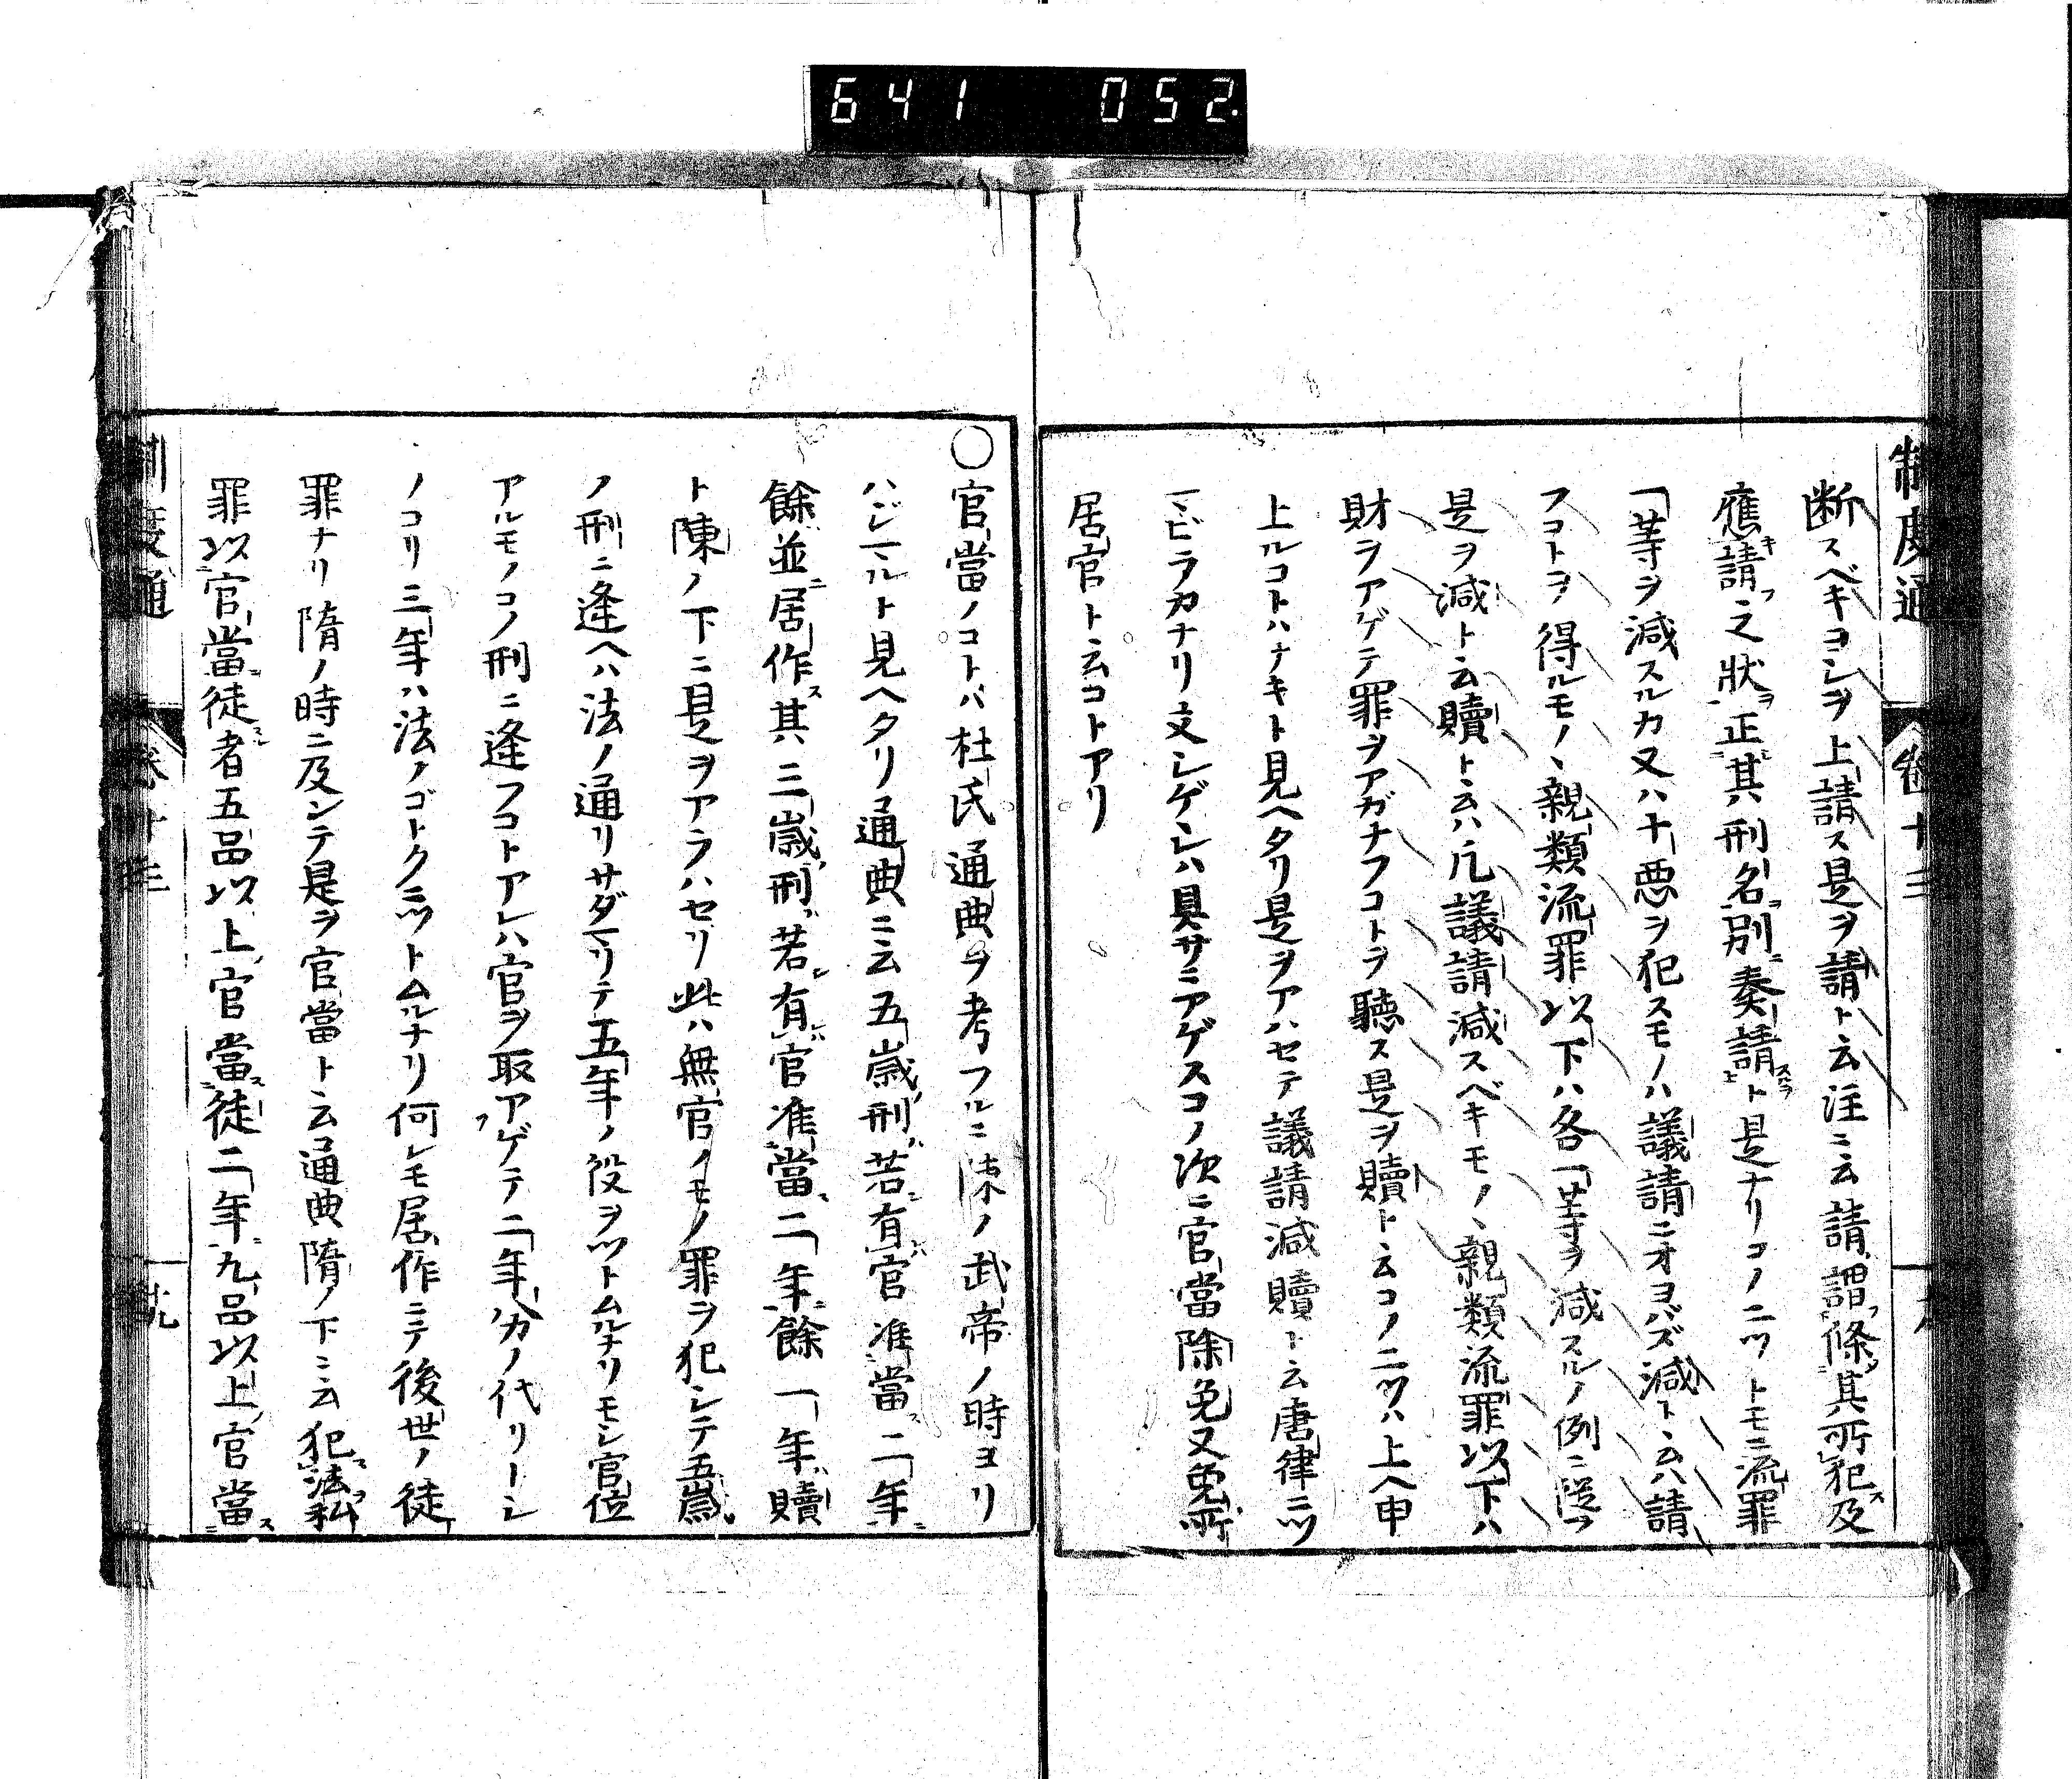 641 052.
制度通 卷十三
断スベキヨシヲ上請ス是ヲ請ト云注ニ云請謂條其所犯及
應請之狀正其刑名別奏請ト是ナリコノ二ツトモニ流罪
一等ヲ減スルカ又ハ十惡ヲ犯スモノハ議請ニオヨバズ減ト云ハ請
フコトヲ得ルモノヽ親類流罪以下ハ各一等ヲ減スルノ例ニ從フ
是ヲ減ト云贖ト云ハ凡議請減スベキモノヽ親類流罪以下ハ
財ヲアゲテ罪ヲアガナフコトヲ聽ス是ヲ贖ト云コノ二ツハ上ヘ申
上ルコトハナキト見ヘタリ是ヲアハセテ議請減贖ト云唐律ニツ
マビラカナリ文シゲシハ具サニアゲスコノ次ニ官當除免又免所
居官ト云コトアリ
○官當ノコトバ杜氏通典ヲ考フルニ陳ノ武帝ノ時ヨリ
ハジマルト見ヘタリ通典ニ云五歲刑若有官准當二年
餘並居作其三歲刑若有官准當二年餘一年贖
ト陳ノ下ニ是ヲアラハセリ此ハ無官ノモノ罪ヲ犯シテ五歲
ノ刑ニ逢ヘハ法ノ通リサダマリテ五年ノ役ヲツトムルナリモシ官位
アルモノコノ刑ニ逢フコトアレハ官ヲ取アゲテ二年分ノ代リトシ
ノコリ三年ハ法ノゴトクニツトムルナリ何レモ居作ニテ後世ノ徒
罪ナリ隋ノ時ニ及ンテ是ヲ官當ト云通典隋ノ下ニ云犯法私
罪以官當徒者五品以上官當徒二年九品以上官當
制度通 卷十三 十九